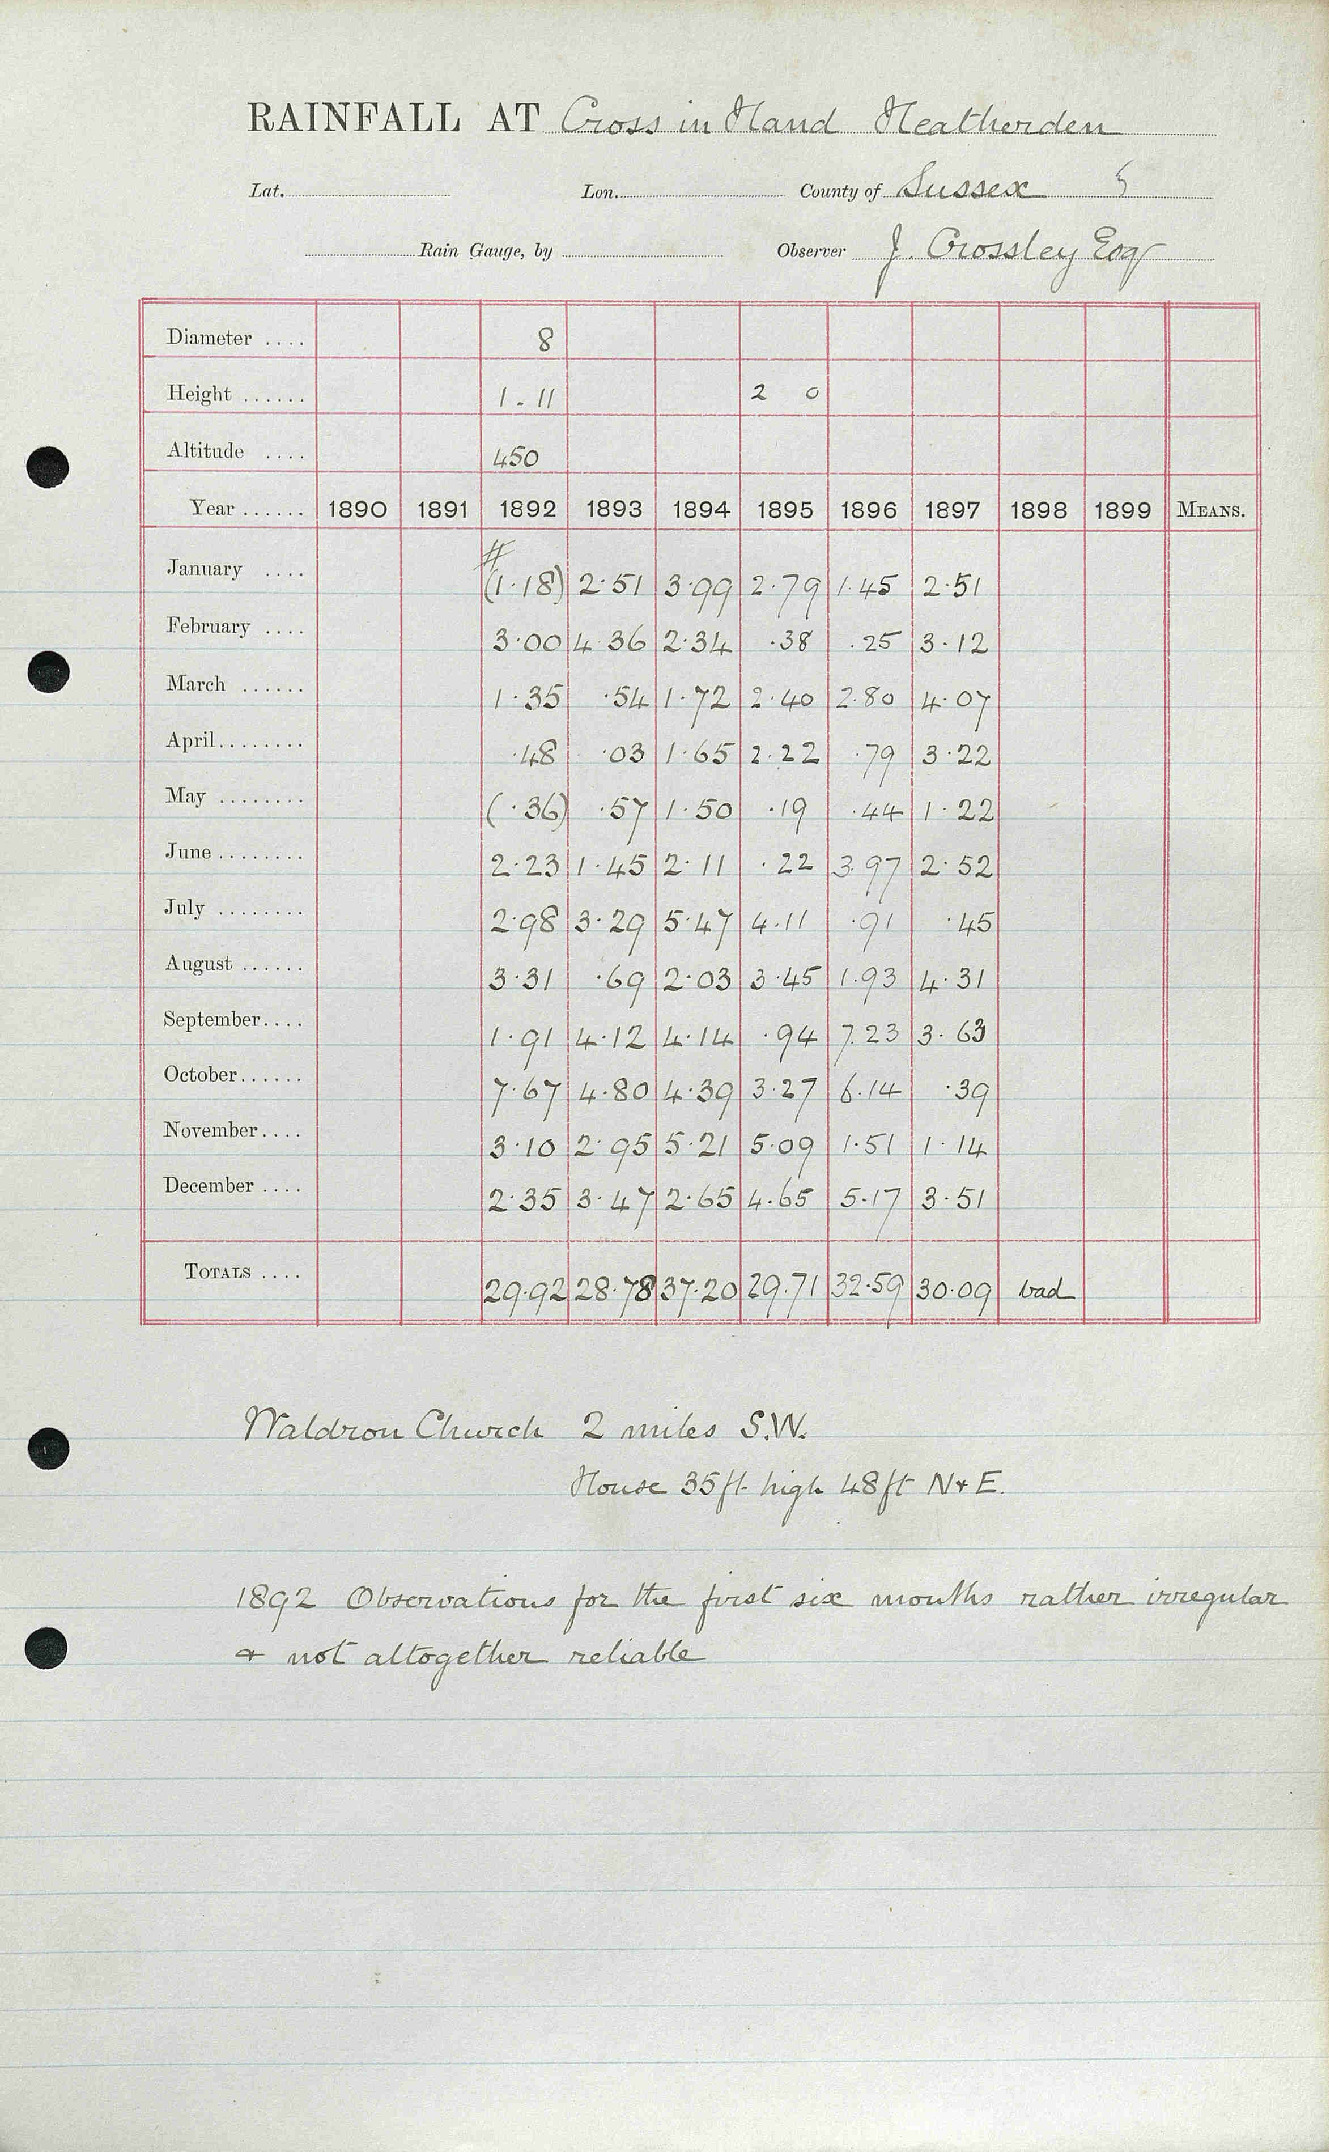 RAINFALL AT Cross in Hand Heatherden
Lat. Lon. County of Sussex
Rain Gauge, by Observer J. Crossley Esq
Diameter .... 8
Height ...... 1 - 11 2 0
Altitude .... 450
Year ...... 1890 1891 1892 1893 1894 1895 1896 1897 1898 1899 MEANS.
#
January .... (1·18) 2·51 3·99 2·79 1·45 2·51
February .... 3·00 4·36 2·34 ·38 ·25 3·12
March ...... 1·35 ·54 1·72 2·40 2·80 4·07
April........ ·48 ·03 1·65 2·22 ·79 3·22
May ........ (·36) ·57 1·50 ·19 ·44 1·22
June ........ 2·23 1·45 2·11 ·22 3·97 2·52
July ........ 2·98 3·29 5·47 4·11 ·91 ·45
August ...... 3·31 ·69 2·03 3·45 1·93 4·31
September.... 1·91 4·12 4·14 ·94 7·23 3·63
October...... 7·67 4·80 4·39 3·27 6·14 ·39
November.... 3·10 2·95 5·21 5·09 1·51 1·14
December .... 2·35 3·47 2·65 4·65 5·17 3·51
TOTALS .... 29·92 28·78 37·20 29·71 32·59 30·09 bad
Waldron Church 2 miles S.W.
House 35ft. high 48ft N & E.
1892 Observations for the first six months rather irregular
& not altogether reliable